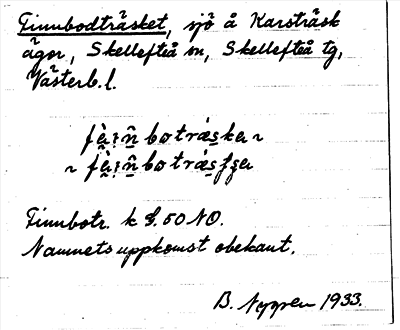 Finnbodträsket, sjö å Karsträsk
ägor, Skellefteå sn, Skellefteå tg,
Västerb. l.
Finnbotr. k bl. 50 NO.
Namnets uppkomst obekant.
B. Nygren 1933.